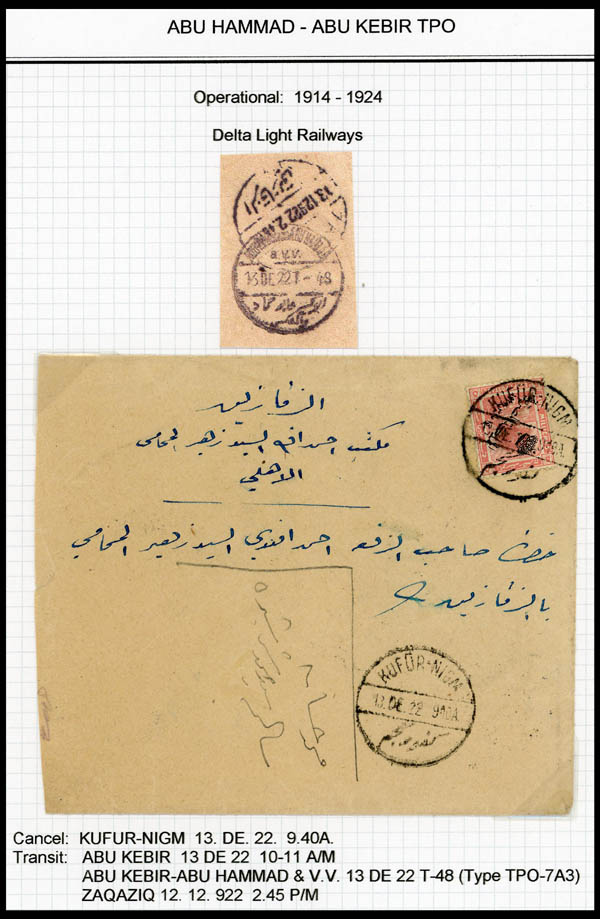 ABU HAMMAD - ABU KEBIR TPO
Operational: 1914 - 1924
Delta Light Railways
الزقازيق
13.12.922 2.45
& V.V.
13 DE 22 T - 48
الزقازيق
مكتب احمد افندي السيد زهير المحامي
الاهلي
KUFÛR-NIGM
DE
حضرة صاحب العزة احمد افندي السيد زهير المحامي
بالزقازيق
KUFÛR-NIGM
13. DE. 22 9-40A
كفور نجم
Cancel: KUFUR-NIGM 13. DE. 22. 9.40A.
Transit: ABU KEBIR 13 DE 22 10-11 A/M
ABU KEBIR-ABU HAMMAD & V.V. 13 DE 22 T-48 (Type TPO-7A3)
ZAQAZIQ 12. 12. 922 2.45 P/M